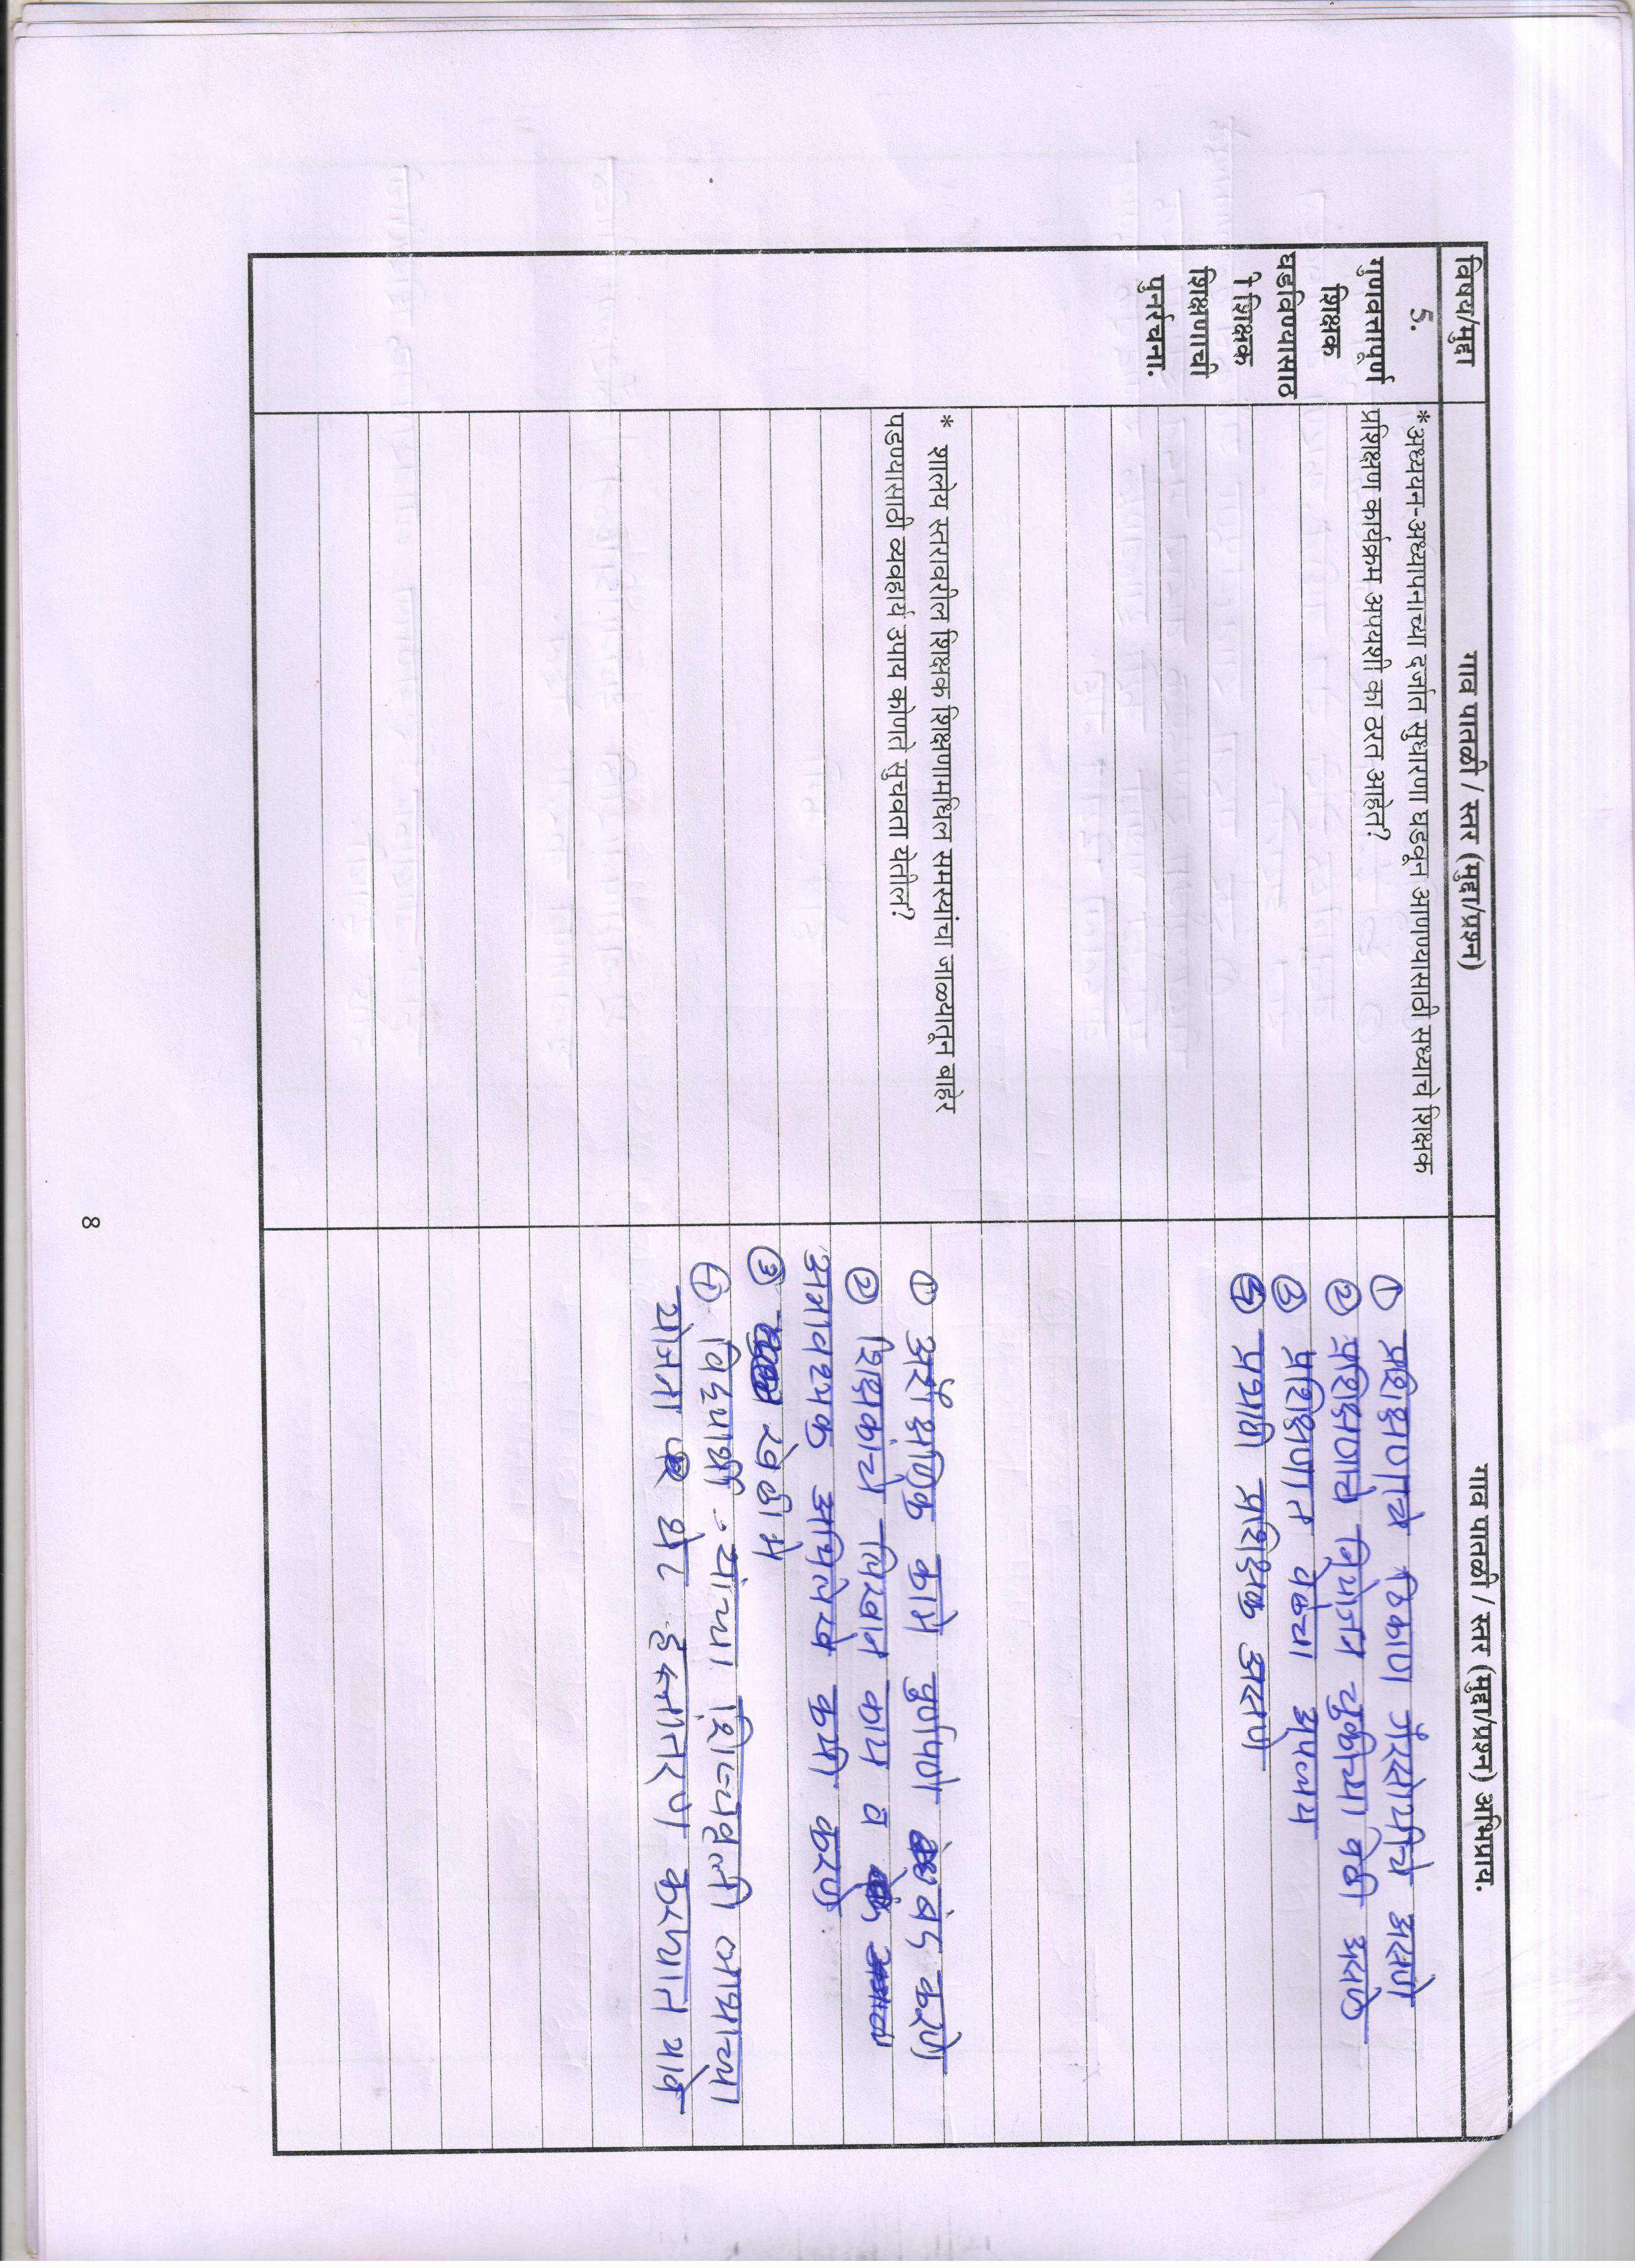 विषय/मुद्दा
गाव पातळी / स्तर (मुद्दा/प्रश्न)
गाव पातळी / स्तर (मुद्दा/प्रश्न) अभिप्राय.
5.
गुणवत्तापूर्ण
शिक्षक
घडविण्यासाठ
ी शिक्षक
शिक्षणाची
पुनर्रचना.
*अध्ययन-अध्यापनाच्या दर्जात सुधारणा घडवून आणण्यासाठी सध्याचे शिक्षक
प्रशिक्षण कार्यक्रम अपयशी का ठरत आहेत?
* शालेय स्तरावरील शिक्षक शिक्षणामधिल समस्यांच्या जाळ्यातून बाहेर
पडण्यासाठी व्यवहार्य उपाय कोणते सुचवता येतील?
① प्रशिक्षणाचे ठिकाण गैरसोयीचे असणे
② प्रशिक्षणाचे नियोजन चुकीच्या वेळी असणे
③ प्रशिक्षणात वेळेचा अपव्यय
प्रभावी प्रशिक्षक असणे
① अशैक्षणिक कामे पुर्णपणे बंद करणे
② शिक्षकांचे लिखान काम व
अनावश्यक अभिलेखे कमी करणे.
③ रेकॉर्ड
विद्यार्थी यांच्या शिष्यवृत्ती लाभाच्या
योजना थेट हस्तांतरण करण्यात यावे
8